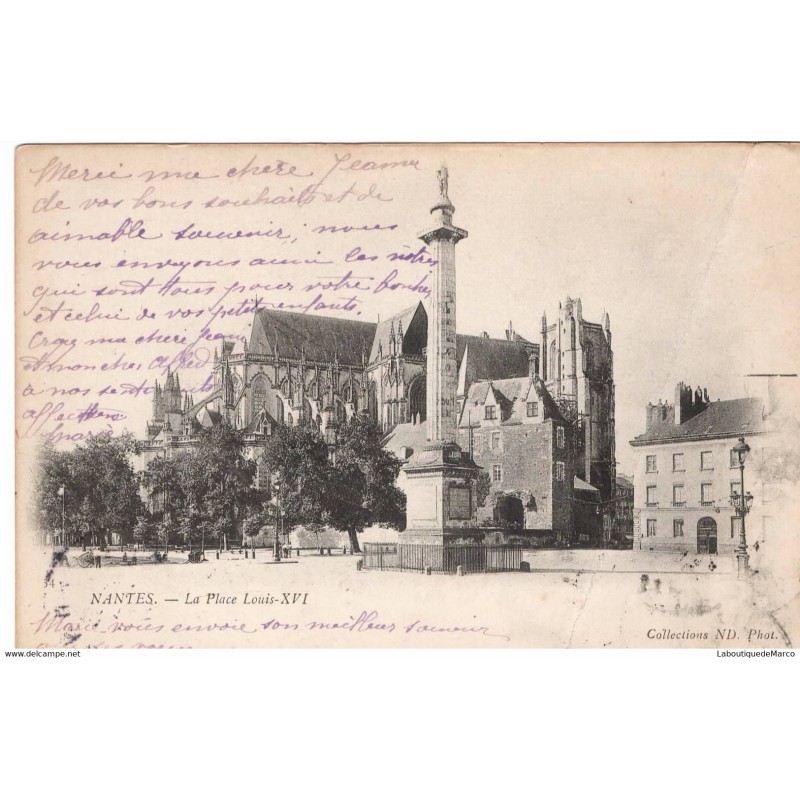 Merci ma chère Jeanne
de vos bons souhaits et de
aimable souvenir, nous
vous envoyons aussi les nôtres
qui sont tous pour votre bonheur
et celui de vos petits enfants.
Croyez ma chère Jeanne
et mon cher Alfred
à nos sentiments
affectueux
34 NANTES. — La Place Louis-XVI
Collections ND. Phot.
Marie vous envoie son meilleur souvenir
LaboutiquedeMarco